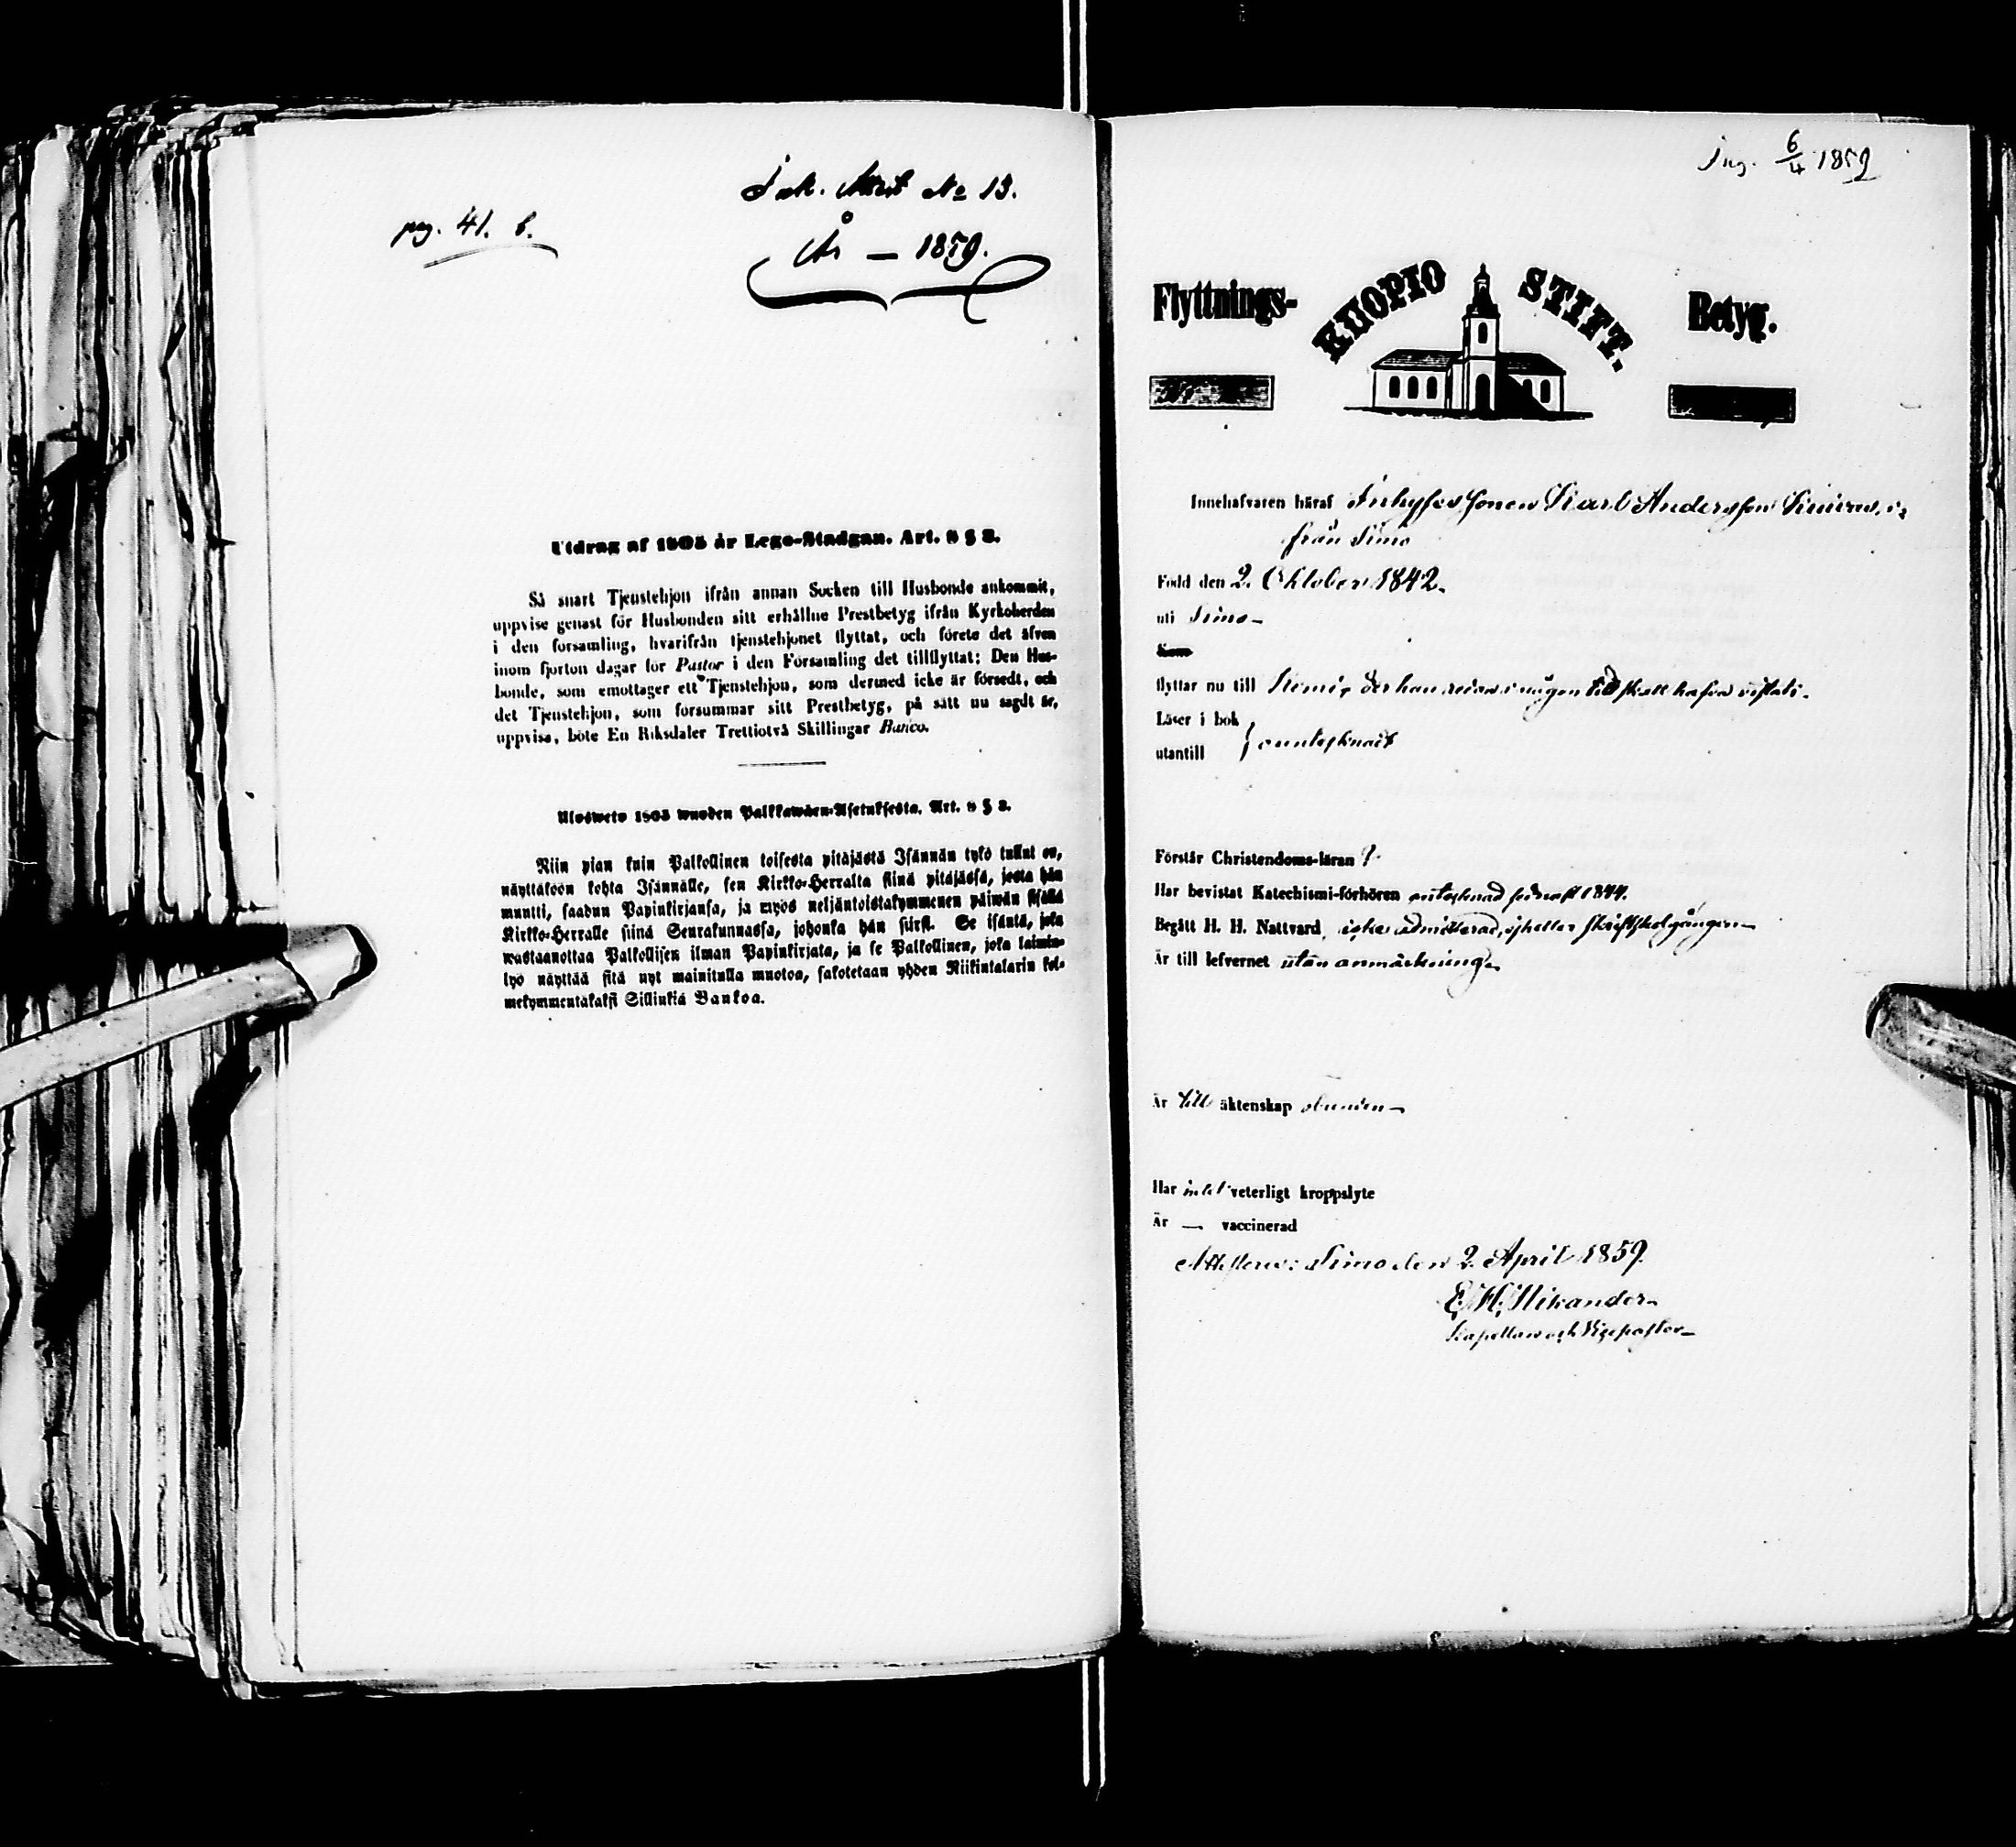 pag. 41. b.
Ink. Attest No 13.
År — 1859.
Utdrag af 1805 år Lego-Stadgan. Art. 8 § 2.
Så snart Tjenstehjon ifrån annan Socken till Husbonde ankommit,
uppvise genast för Husbonden sitt erhållne Prestbetyg ifrån Kyrkoherden
i den församling, hvarifrån tjenstehjonet flyttat, och förete det äfven
inom fjorton dagar för Pastor i den Församling det tillflyttat; Den Hus-
bonde, som emottager ett Tjenstehjon, som dermed icke är försedt, och
det Tjenstehjon, som försummar sitt Prestbetyg, på sätt nu sagdt är,
uppvisa, böte En Riksdaler Trettiotvå Skillingar Banco.
Ulosweto 1805 wuoden Palkkawäen-Asetuksesta. Art. 8 § 2.
Niin pian kuin Palkollinen toisesta pitäjästä Isännän tykö tullut on,
näyttäköön kohta Isännälle, sen Kirkko-Herralta siinä pitäjässä, josta hän
muutti, saadun Papinkirjansa, ja myös neljäntoistakymmenen päiwän sisällä
Kirkko-Herralle siinä Seurakunnassa, johonka hän siirsi. Se isäntä, joka
wastaanottaa Palkollisen ilman Papinkirjata, ja se Palkollinen, joka laimin-
lyö näyttää sitä nyt mainitulla muotoa, sakotetaan yhden Riikintalarin kol-
mekymmentäkaksi Sillinkiä Bankoa.
Ing. 6/4 1859
Flyttnings- KUOPIO STIFT. Betyg.
Innehafvaren häraf Inhyses sonen Karl Andersson
från Simo
Född den 2. Oktober 1842.
uti Simo
Kom
flyttar nu till Kemi, der han redan i någon tid skall hafva vistats.
Läser i bok
utantill
Förstår Christendoms-läran ?
Har bevistat Katechismi-förhören antecknad sednast 1844.
Begått H. H. Nattvard icke admitterad, ej heller skriftskolgången
Är till lefvernet utan anmärkning.
Är till äktenskap obunden
Har intet veterligt kroppslyte
Är — vaccinerad
Attesteras: Simo den 2. April 1859.
E. H. Nikander
Kapellan och Vicepastor